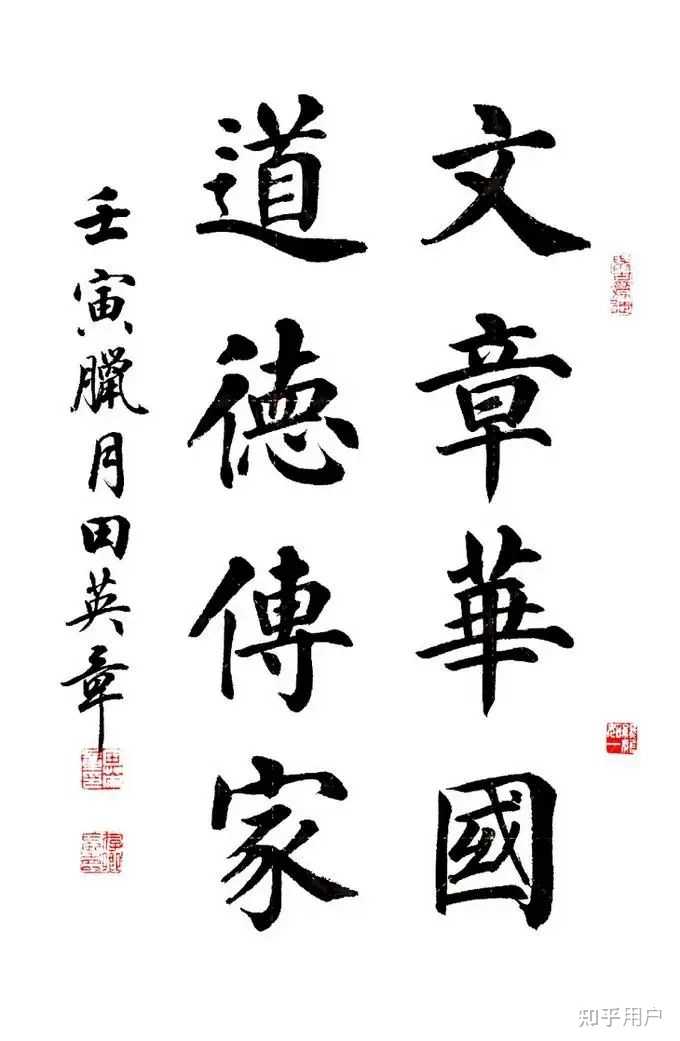 文章華國
道德傳家
壬寅臘月田英章
知乎用户